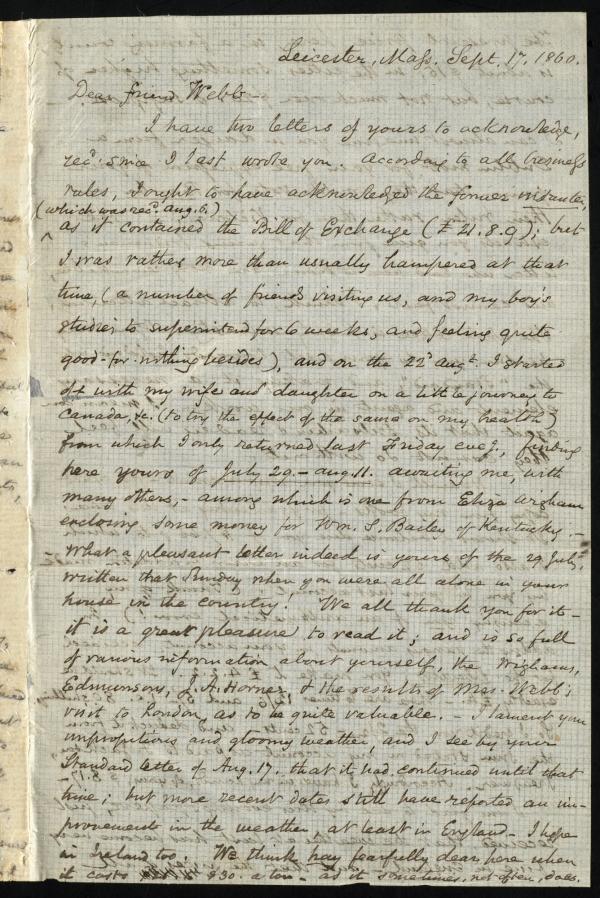 Leicester, Mass. Sept. 17. 1860.
Dear friend Webb -
I have two letters of yours to acknowledge,
recd. since I last wrote you. According to all business
rules, I ought to have acknowledged the former instanter,
(which was recd. Aug. 6.)
as it contained the Bill of Exchange (£ 21. 8. 9); but
I was rather more than usually hampered at that
time, (a number of friends visiting us, and my boy's
studies to superintend for 6 weeks, and feeling quite
good-for-nothing besides), and on the 22d Augt. I started
off with my wife and daughter on a little journey to
Canada, &c. (to try the effect of the same on my health)
from which I only returned last Friday eveg., finding
here yours of July 29. - Aug. 11. awaiting me, with
many others, - among which is one from Eliza Wigham
enclosing some money for Wm. S. Bailey of Kentucky. -
What a pleasant letter indeed is yours of the 29 July,
written that Sunday when you were all alone in your
house in the country! We all thank you for it -
it is a great pleasure to read it; and is so full
of various information about yourself, the Wighams,
Edmunsons, J. A. Horner, & the results of Mrs. Webb's
visit to London, as to be quite valuable. - I lament your
unpropitious and gloomy weather, and I see by your
Standard letter of Aug. 17. that it had continued until that
time; but more recent dates still have reported an im-
provement in the weather, at least in England - I hope
in Ireland too. We think hay fearfully dear here when
it costs $30. a ton - as it sometimes, not often, does.